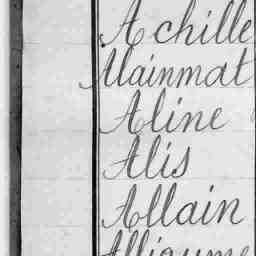 Achille
Alainmat
Aline
Alis
Allain
Alliaume